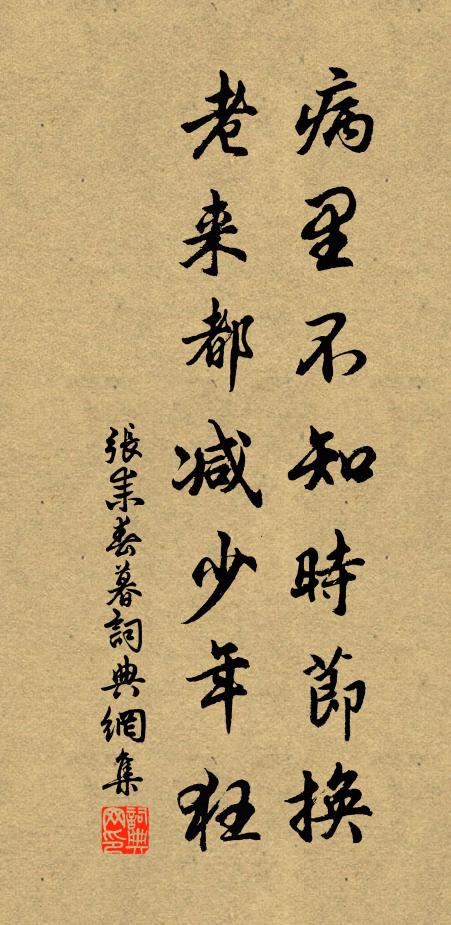 病里不知時節換
老来都减少年狂
張耒春暮詞典網集
詞典网印